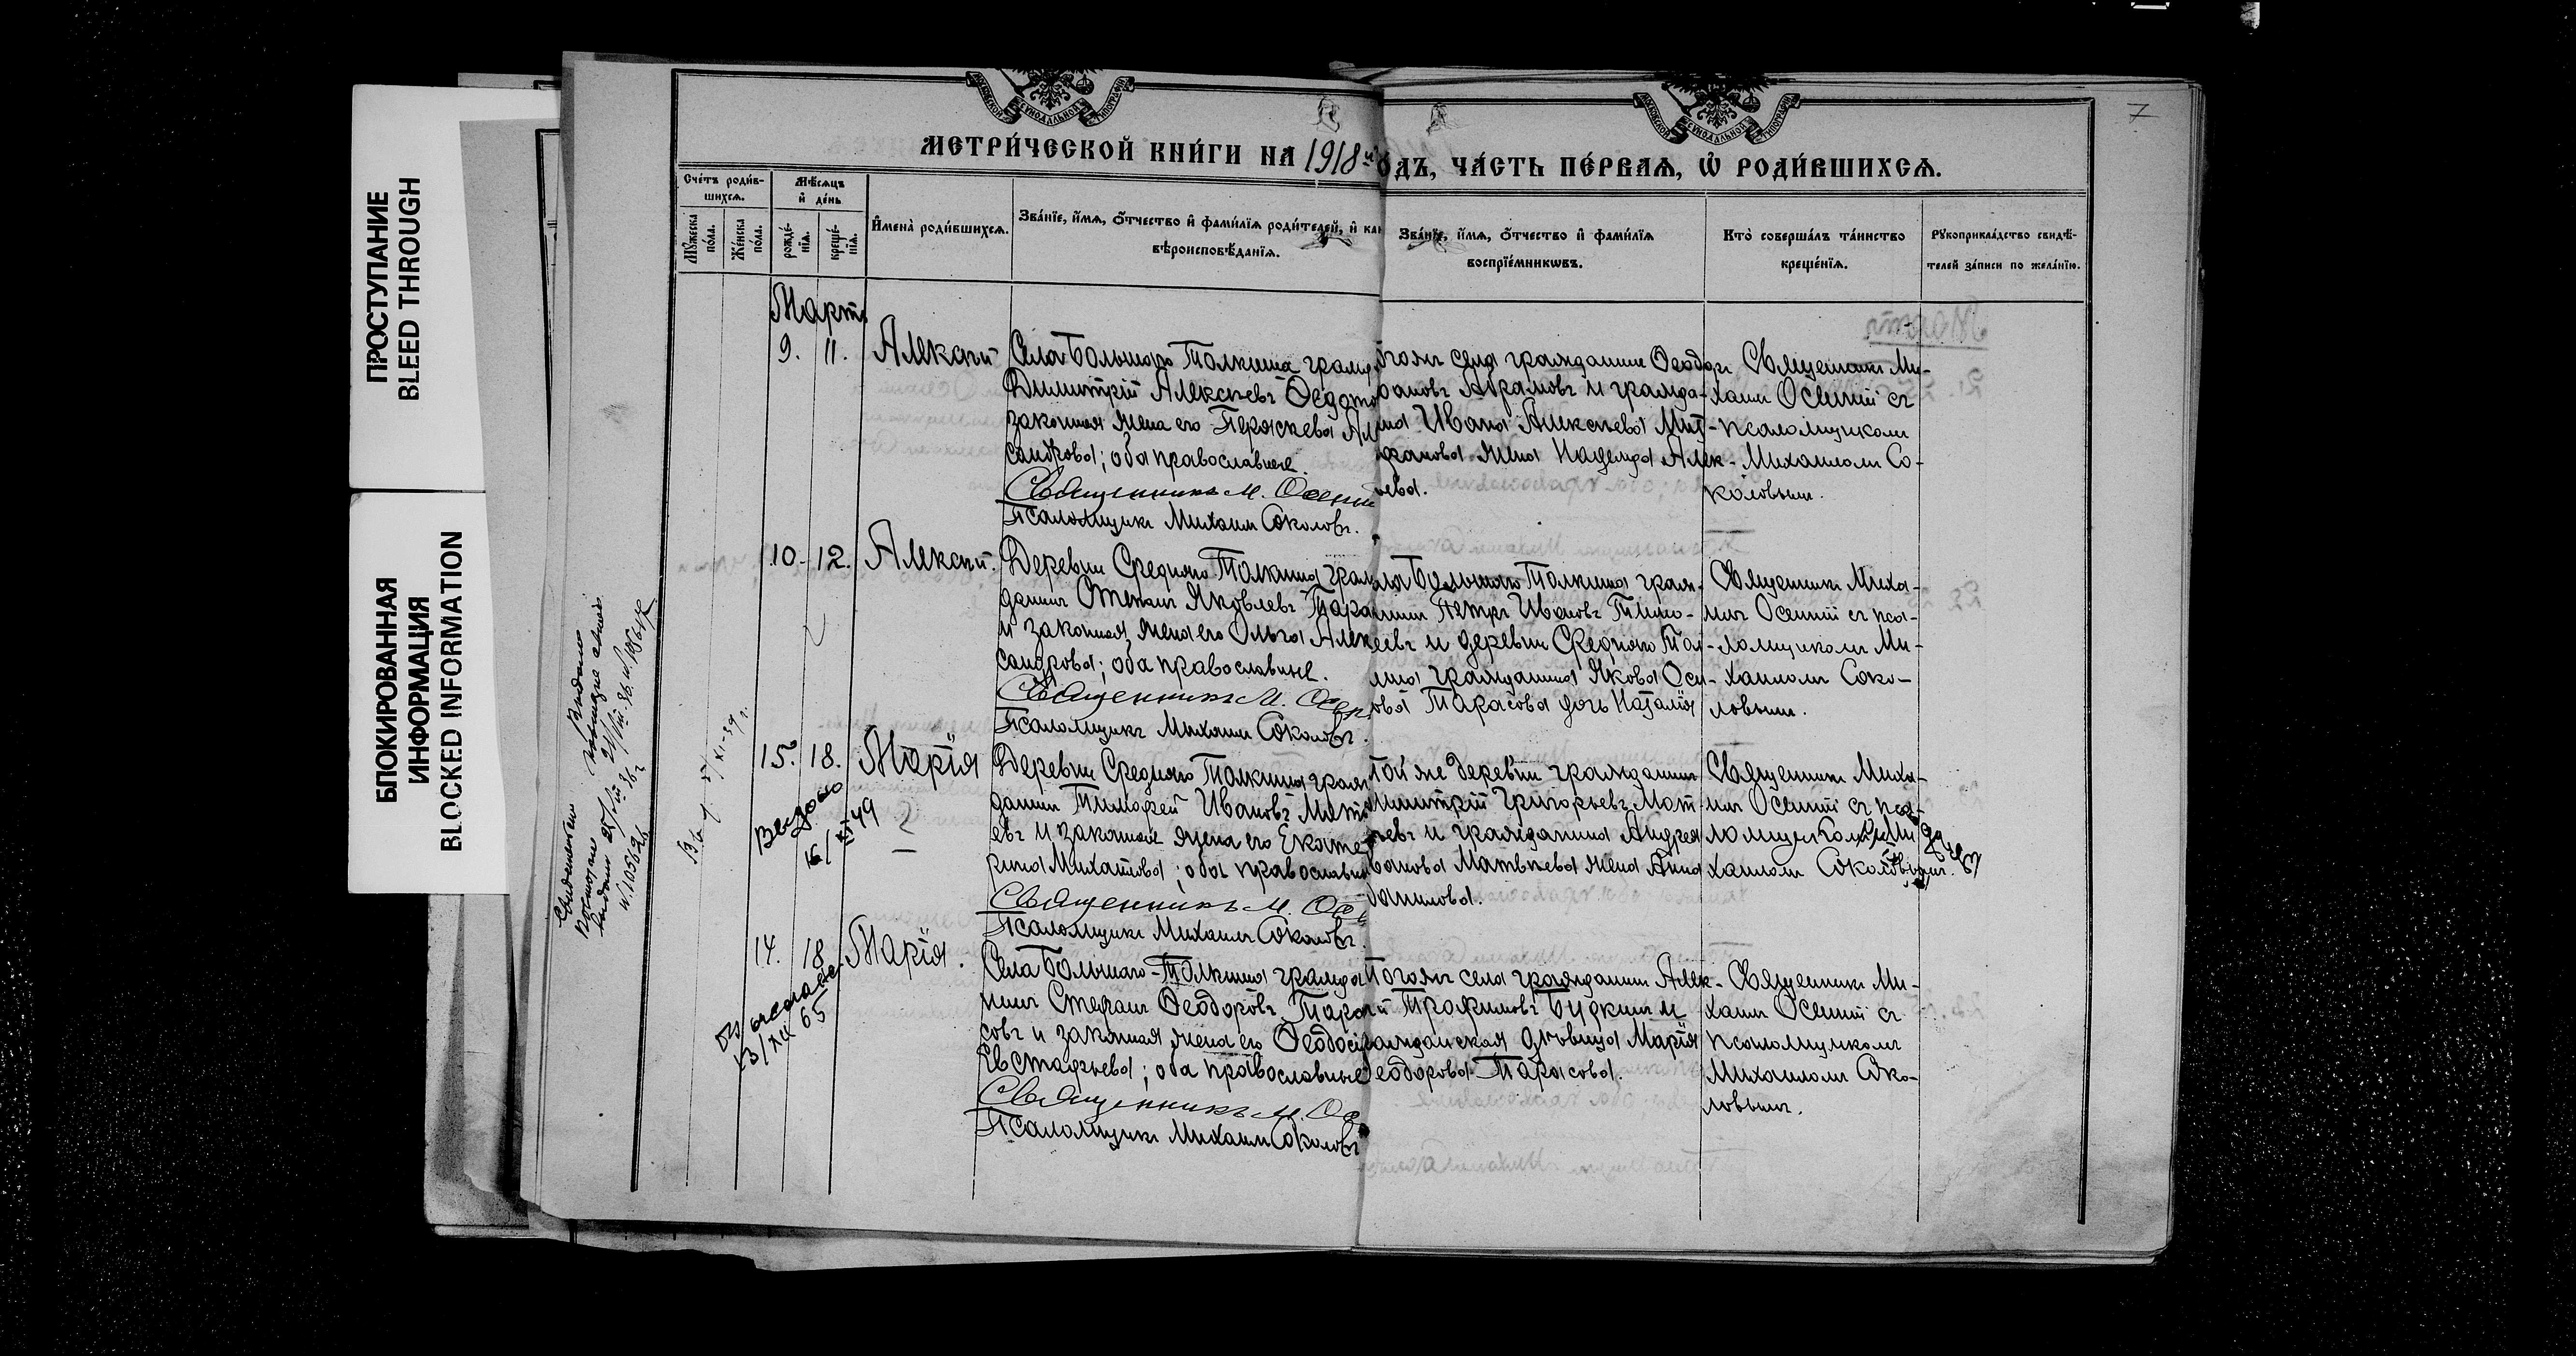 ПРОСТУПАНИЕ
BLEED THROUGH
БЛОКИРОВАННАЯ
ИНФОРМАЦИЯ
BLOCKED INFORMATION
7
МОСКОВСКОЙ СѴНОДАЛЬНОЙ ТИПОГРАФІИ
МОСКОВСКОЙ СѴНОДАЛЬНОЙ ТИПОГРАФІИ
МЕТРИ́ЧЕСКОЙ КНИ́ГИ НА 1918й
ОДЪ, ЧА́СТЬ ПЕ́РВАЯ, Ѡ҆ РОДИ́ВШИХСѦ.
Сче́тъ роди́в-
шихсѧ.
Мꙋ́жеска
по́ла.
Же́нска
по́ла.
Мѣ́сѧцъ
и҆ де́нь
рожде́-
нїѧ.
креще́-
нїѧ.
И҆мена̀ роди́вшихсѧ.
Зва́нїе, и҆́мѧ, ѻ҆́тчество и҆ фами́лїѧ роди́телей, и҆ как
вѣроисповѣ́данїѧ.
Зва́нїе, и҆́мѧ, ѻ҆́тчество и҆ фами́лїѧ
воспрїе́мникѡвъ.
Кто̀ соверша́лъ та́инство
креще́нїѧ.
Рꙋкоприкла́дство свидѣ́-
телей за́писи по жела́нїю.
Мартъ
9. 11. Алексѣй
Села Большаго Толкиша гражд
Димитрій Алексѣевъ Ѳедото
законная жена его Параскева Ал
сандрова; оба православные.
Священникъ М. Осенній
Псаломщикъ Михаилъ Соколовъ.
тогожъ села гражданинъ Ѳеодоръ
вановъ Абрамовъ и гражда-
ина Ивана Алексѣева Мит-
фанова жена Надежда Алек-
ѣева.
Священникъ Ми-
хаилъ Осенній съ
псаломщикомъ
Михаиломъ Со-
коловымъ.
10. 12. Алексѣй.
Деревни Средняго Толкиша граж
данинъ Степанъ Яковлевъ Тара
и законная жена его Ольга Алек
сандрова; оба православные.
Священникъ М. Осен
Псаломщикъ Михаилъ Соколовъ.
ла Большаго Толкиша граж-
нинъ Петръ Ивановъ Тимо-
еевъ и деревни Средняго Тол-
иша гражданина Якова Оси-
ова Тарасова дочь Наталія
Священникъ Миха-
илъ Осенній съ пса-
ломщикомъ Ми-
хаиломъ Соко-
ловымъ.
15. 18. Марія
Выдано
16/XI 49
Деревни Средняго Толкиша граж
данинъ Тимофей Ивановъ Матв
евъ и законная жена его Екате
рина Михайлова; оба православн
Священникъ М. Осе
Псаломщикъ Михаилъ Соколовъ.
той же деревни гражданинъ
имитрій Григорьевъ Мат-
ѣевъ и гражданина Андрея
ванова Матвѣева жена Анна
Данилова.
Священникъ Миха-
илъ Осенній съ пса-
ломщикомъ Ми
хаиломъ Соколовымъ.
14. 18. Марія.
13/XII 65
Села Большаго Толкиша гражда
нинъ Стефанъ Ѳеодоровъ Тара
совъ и законная жена его Ѳеодосія
Евстафьева; оба православные
Священникъ М. Ос
Псаломщикъ Михаилъ Соколовъ
тогожъ села гражданинъ Алек-
й Трофимовъ Буркинъ и
ражданская дѣвица Марія
еодорова Тарасова.
Священникъ Ми-
хаилъ Осенній съ
псаломщикомъ
Михаиломъ Соко-
ловымъ.